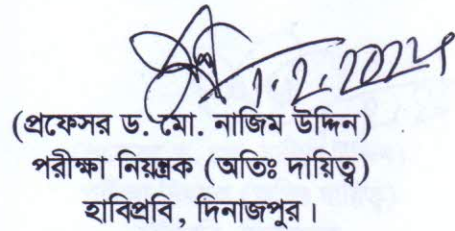 1.2.2024
(প্রফেসর ড. মো. নাজিম উদ্দিন)
পরীক্ষা নিয়ন্ত্রক (অতিঃ দায়িত্ব)
হাবিপ্রবি, দিনাজপুর।